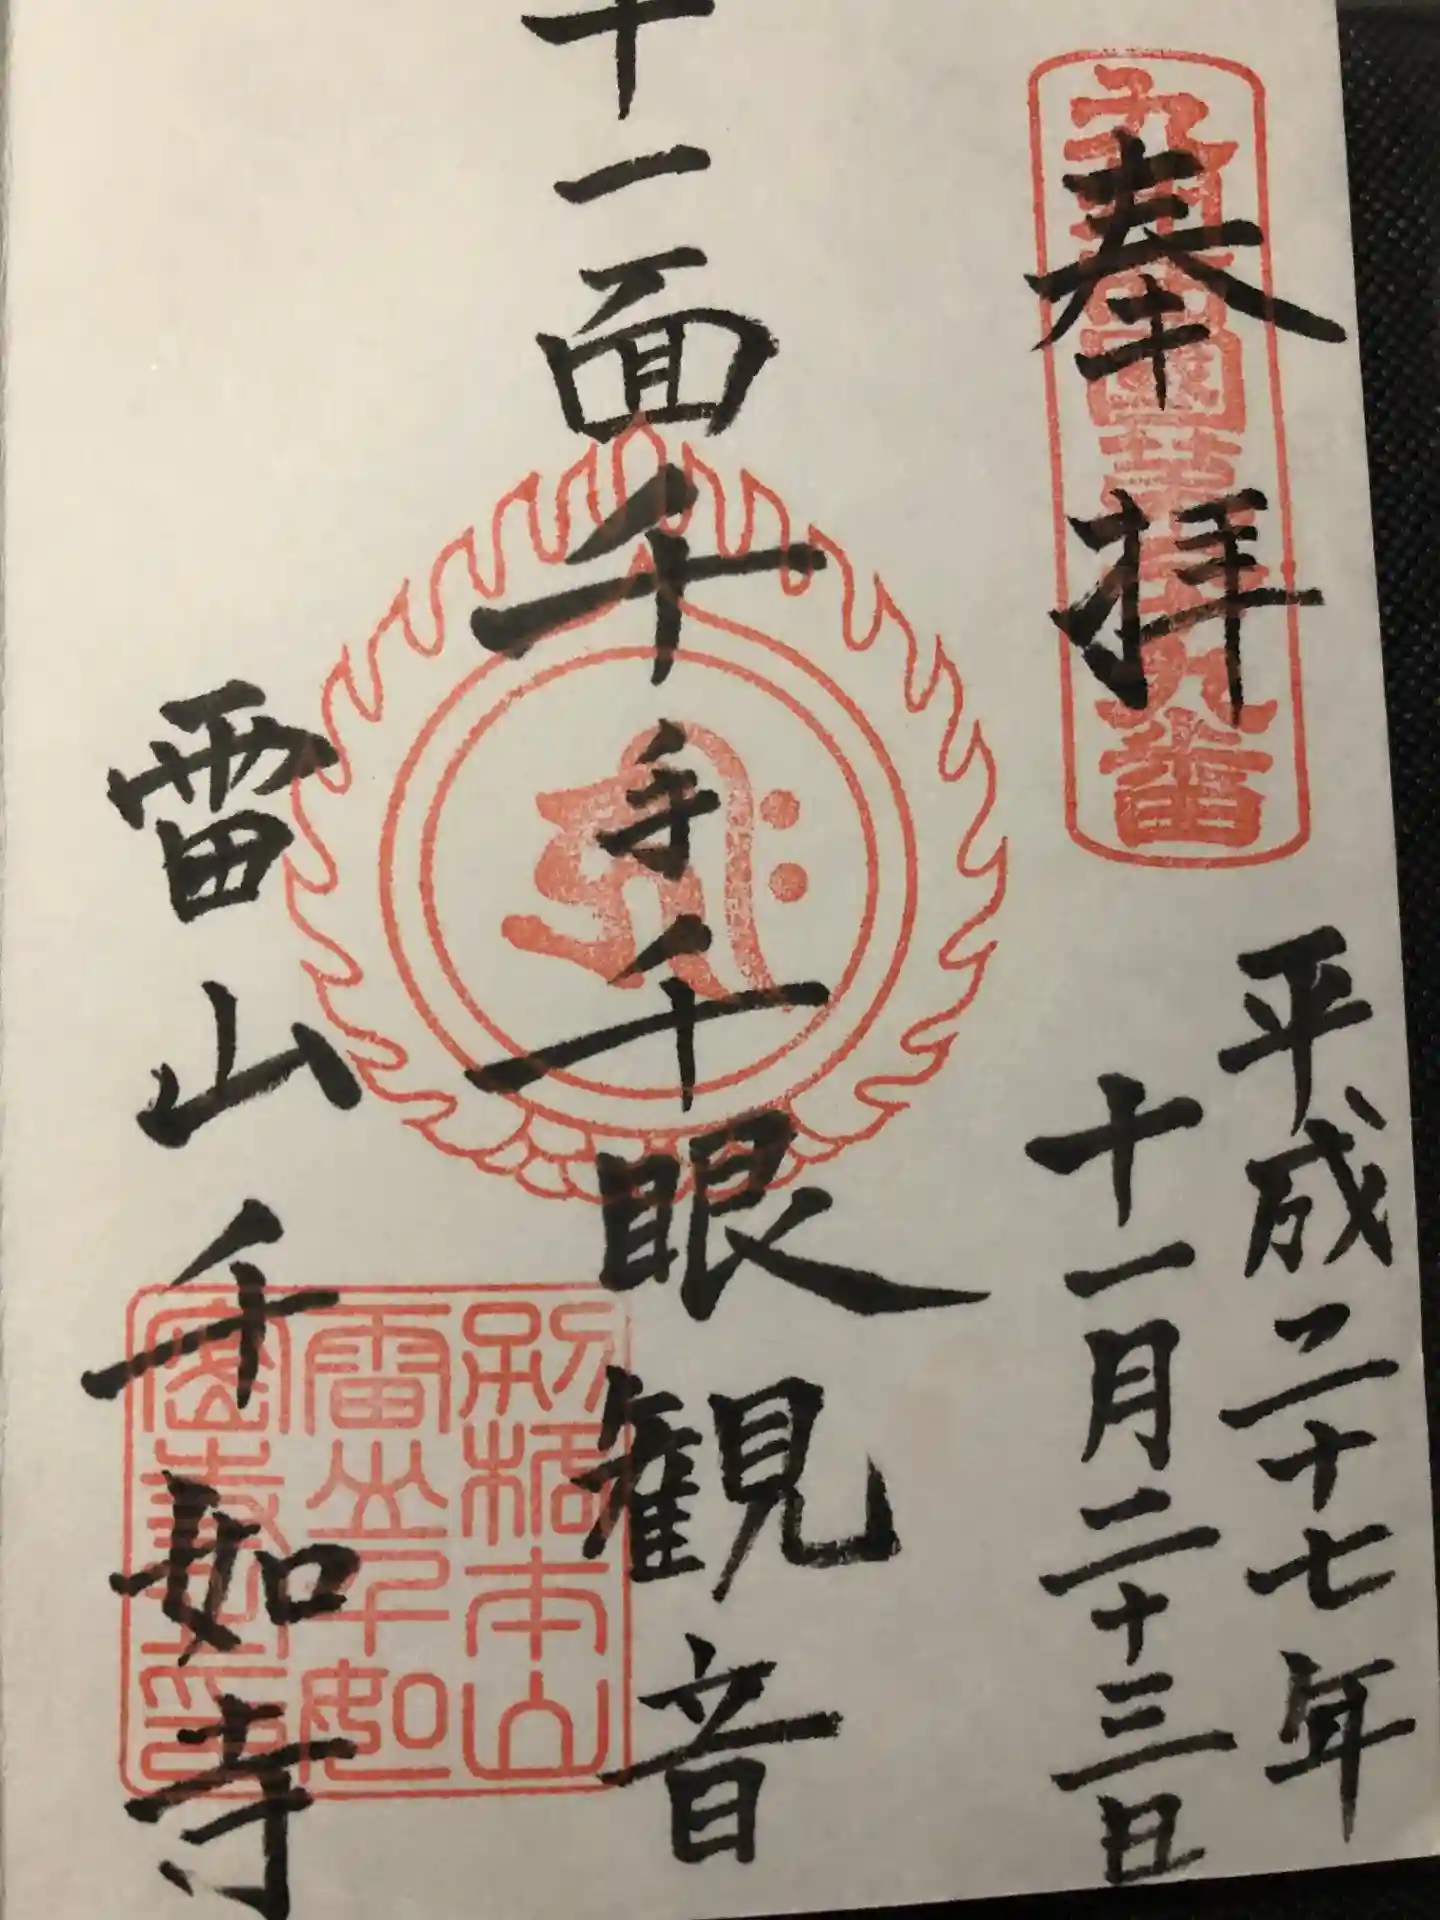 奉拝
平成二十七年
十一月二十三日
十一面千手千眼観音
雷山千如寺
別格本山
雷山千如
密寺印